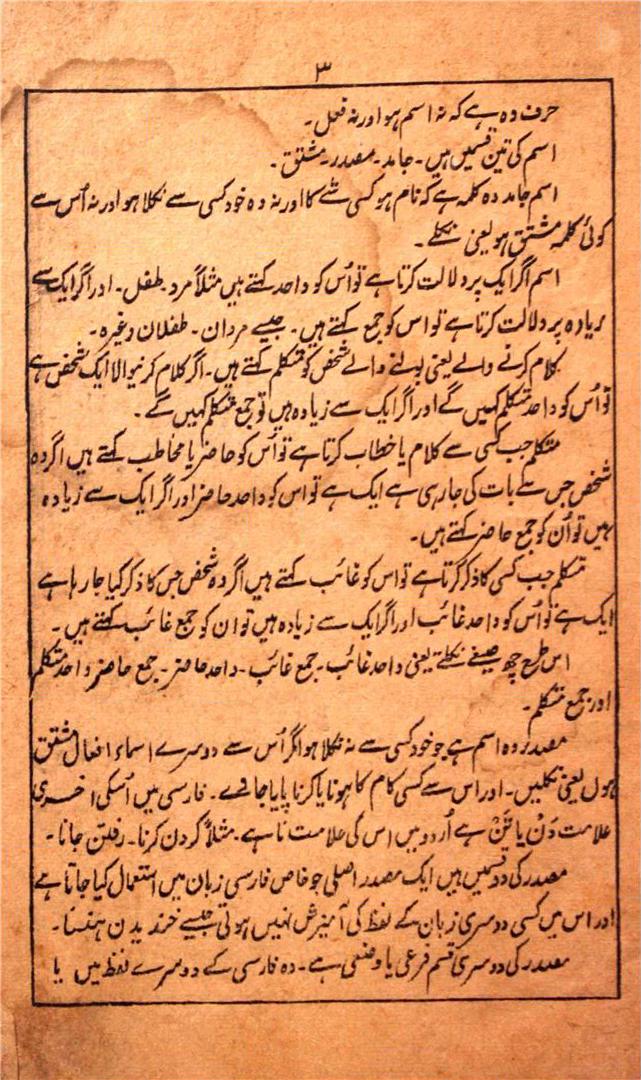 ۳
حرف وہ ہے کہ نہ اسم ہو اور نہ فعل۔
اسم کی تین قسمیں ہیں۔ جامد۔ مصدر۔ مشتق۔
اسم جامد وہ کلمہ ہے کہ نام ہو کسی شے کا اور نہ وہ خود کسی سے نکلا ہو اور نہ اُس سے
کوئی کلمہ مشتق ہو یعنی نکلے۔
اسم اگر ایک پر دلالت کرتا ہے تو اُس کو واحد کہتے ہیں مثلاً مرد۔ طفل۔ اور اگر ایک سے
زیادہ پر دلالت کرتا ہے تو اس کو جمع کہتے ہیں۔ جیسے مردان۔ طفلان وغیرہ۔
کلام کرنے والے یعنی بولنے والے شخص کو متکلم کہتے ہیں۔ اگر کلام کرنیوالا ایک شخص ہے
تو اُس کو واحد متکلم کہیں گے اور اگر ایک سے زیادہ ہیں تو جمع متکلم کہیں گے۔
متکلم جب کسی سے کلام یا خطاب کرتا ہے تو اُس کو حاضر یا مخاطب کہتے ہیں اگر وہ
شخص جس سے بات کی جا رہی ہے ایک ہے تو اس کو واحد حاضر اور اگر ایک سے زیادہ
ہیں تو اُن کو جمع حاضر کہتے ہیں۔
متکلم جب کسی کا ذکر کرتا ہے تو اس کو غائب کہتے ہیں اگر وہ شخص جس کا ذکر کیا جا رہا ہے
ایک ہے تو اُس کو واحد غائب اور اگر ایک سے زیادہ ہیں تو ان کو جمع غائب کہتے ہیں۔
اس طرح چھ صیغے نکلے یعنی واحد غائب۔ جمع غائب۔ واحد حاضر۔ جمع حاضر واحد متکلم
اور جمع متکلم۔
مصدر وہ اسم ہے جو خود کسی سے نہ نکلا ہو اگر اُس سے دوسرے اسماء افعال مشتق
ہوں یعنی نکلیں۔ اور اس سے کسی کام کا ہونا یا کرنا پایا جاوے۔ فارسی میں اُسکی اخیری
علامت دَنْ یا تَنْ ہے اُردو میں اس کی علامت نا ہے۔ مثلاً کردن کرنا۔ رفتن جانا۔
مصدر کی دو قسمیں ہیں ایک مصدر اصلی جو خاص فارسی زبان میں استعمال کیا جاتا ہے
اور اس میں کسی دوسری زبان کے لفظ کی آمیزش نہیں ہوتی جیسے خندیدن ہنسنا۔
مصدر کی دوسری قسم فرعی یا وضعی ہے۔ وہ فارسی کے دوسرے لفظ میں یا